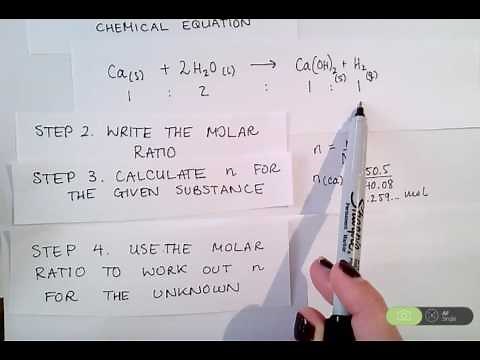 CHEMICAL EQUATION
Ca(s) + 2H2O(l) → Ca(OH)2(s) + H2(g)
1 : 2 : 1 : 1
STEP 2. WRITE THE MOLAR
RATIO
n =
STEP 3. CALCULATE n FOR
THE GIVEN SUBSTANCE
n(Ca)
50.5
40.08
.259... mol
STEP 4. USE THE MOLAR
RATIO TO WORK OUT n
FOR THE UNKNOWN
Sharpie
AF
Single